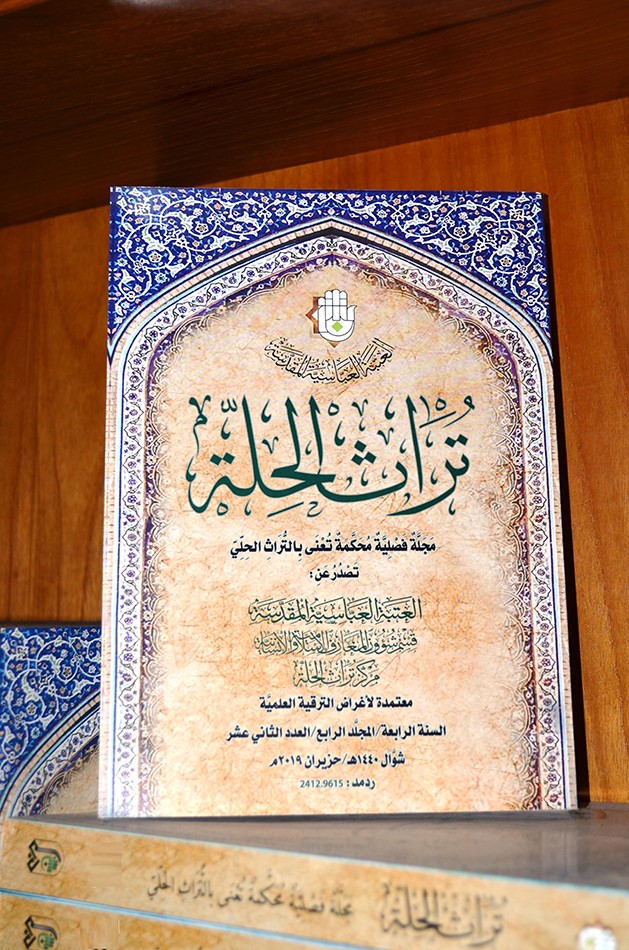 العتبة العباسية المقدسة
تُرَاثُ الحِلّة
مَجَلَّةٌ فَصْلِيَّةٌ مُحَكَّمَةٌ تُعْنَى بِالتُّرَاثِ الحِلِّيّ
تَصْدُرُ عَن:
العتبة العباسية المقدسة
قسم شؤون المعارف الإسلامية والإنسانية
مركز تراث الحلة
معتمدة لأغراض الترقية العلميَّة
السنة الرابعة/المجلَّد الرابع/العدد الثاني عشر
شوَّال ١٤٤٠هـ/حزيران ٢٠١٩م
ردمد: 2412.9615
تُرَاثُ الحِلّة مَجَلَّةٌ فَصْلِيَّةٌ مُحَكَّمَةٌ تُعْنَى بِالتُّرَاثِ الحِلِّيّ
تُرَاثُ الحِلّة